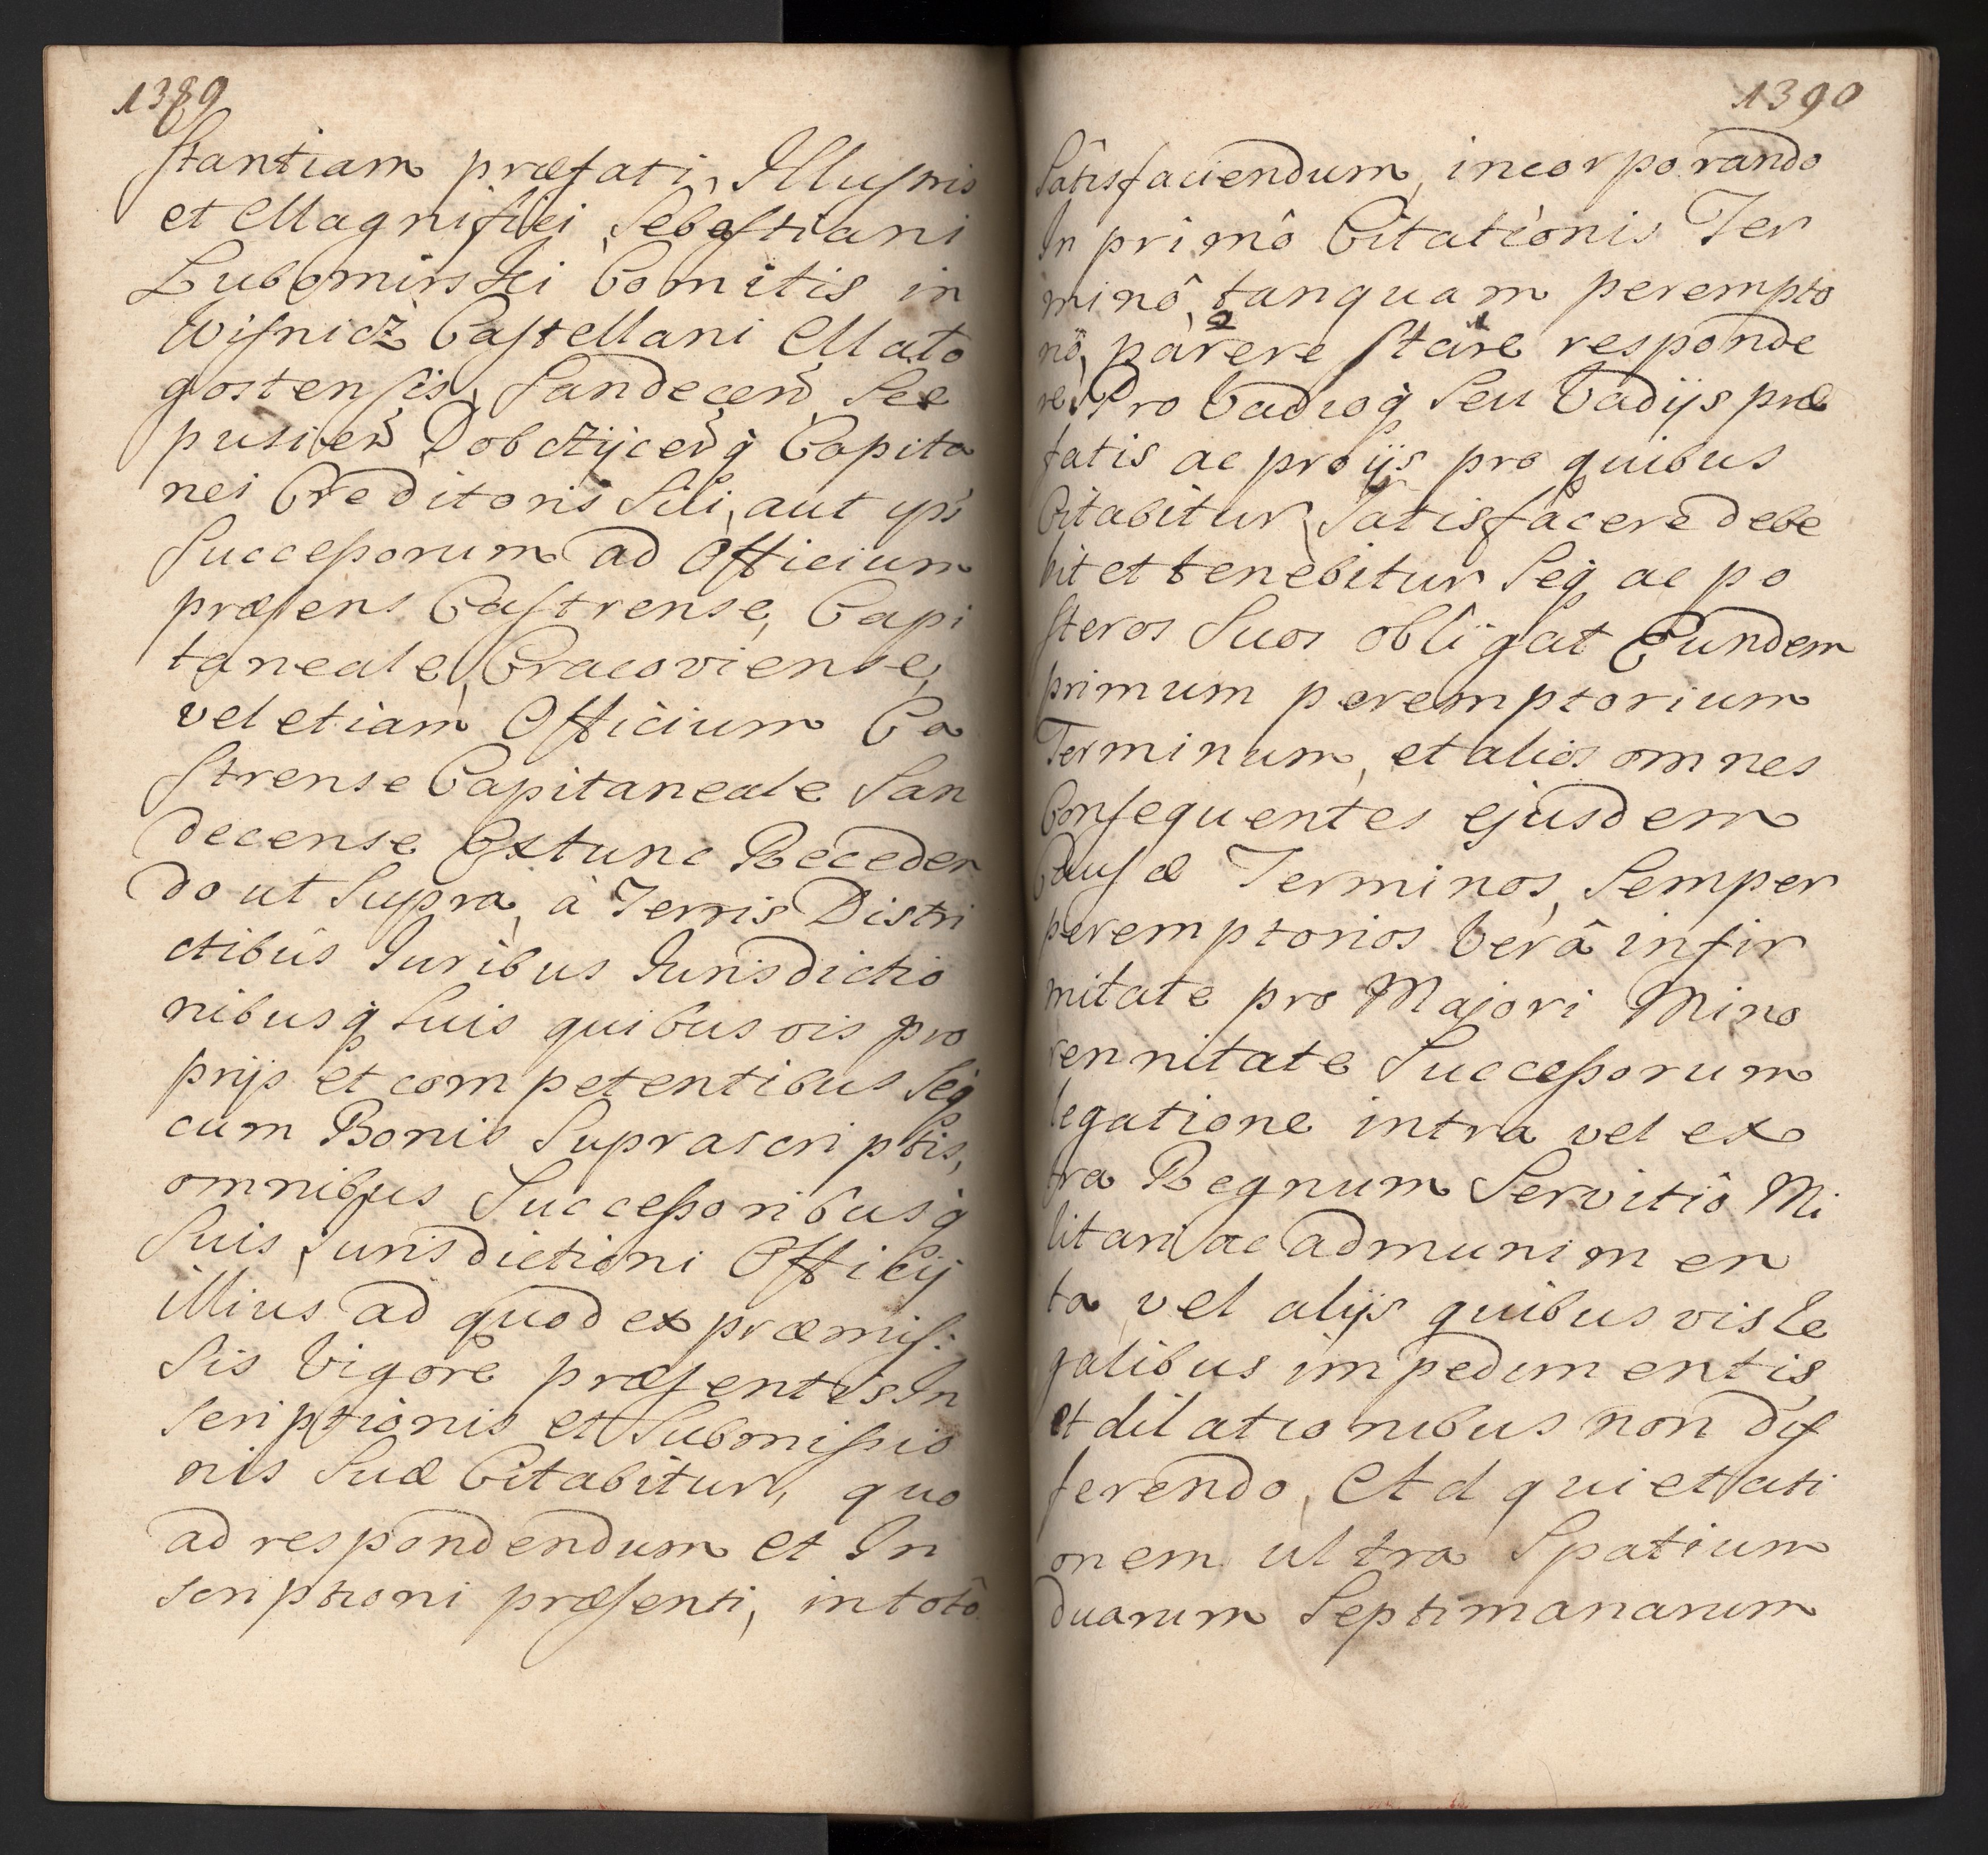 1389
stantiam præfati, Illustris
et Magnifici Sebastiani
Lubomirski Comitis in
Wisnicz Castellani Mało
gostensis, Sandecen See
pusien Dobczÿcenq Capita
nei Creditoris Sui, aut ips
Successorum ad Officium
præsens Castrense, Capi
taneale, Cracoviense,
vel etiam Officium Ca
strense Capitaneale San
decense Extunc Receden
do ut Supra, à Terris Distri
ctibus Juribus Jurisdictio
nibusq Suis quibusvis pro
prijs et competentibus Seq
cum Bonis Suprascriptis,
omnibus Successoribusq
Suis Jurisdictioni Officij
illius ad quod ex præmis:
sis Vigore præsentis In
scriptionis et Submissio
nis Suæ Citabitur, quo
ad respondendum et In
scriptioni præsenti, in totô
1390
Satisfaciendum, incorporando
In primô Citationis Ter
minô, tanquam perempto
riô, parere stare responde
re Pro Vadioq Seu Vadijs præ
fatis ac pro ijs pro quibus
Citabitur Satisfacere debe
bit et tenebitur Seq ac po
steros Suos obligat Eundem
primum peremptorium
Terminum, et alios omnes
Consequentes ejusdem
Causæ Terminos, Semper
peremptorios Verâ infir
mitate pro Majori Mino
rennitate Successorum
legatione intra vel ex
tra Regnum Servitiô Mi
litari ac ad munimen
ta vel alijs quibusvis le
galibus impedimentis,
et dilationibus non dif
ferendo, Et d quietati
onem ultra Spatium
duarum Septimanarum